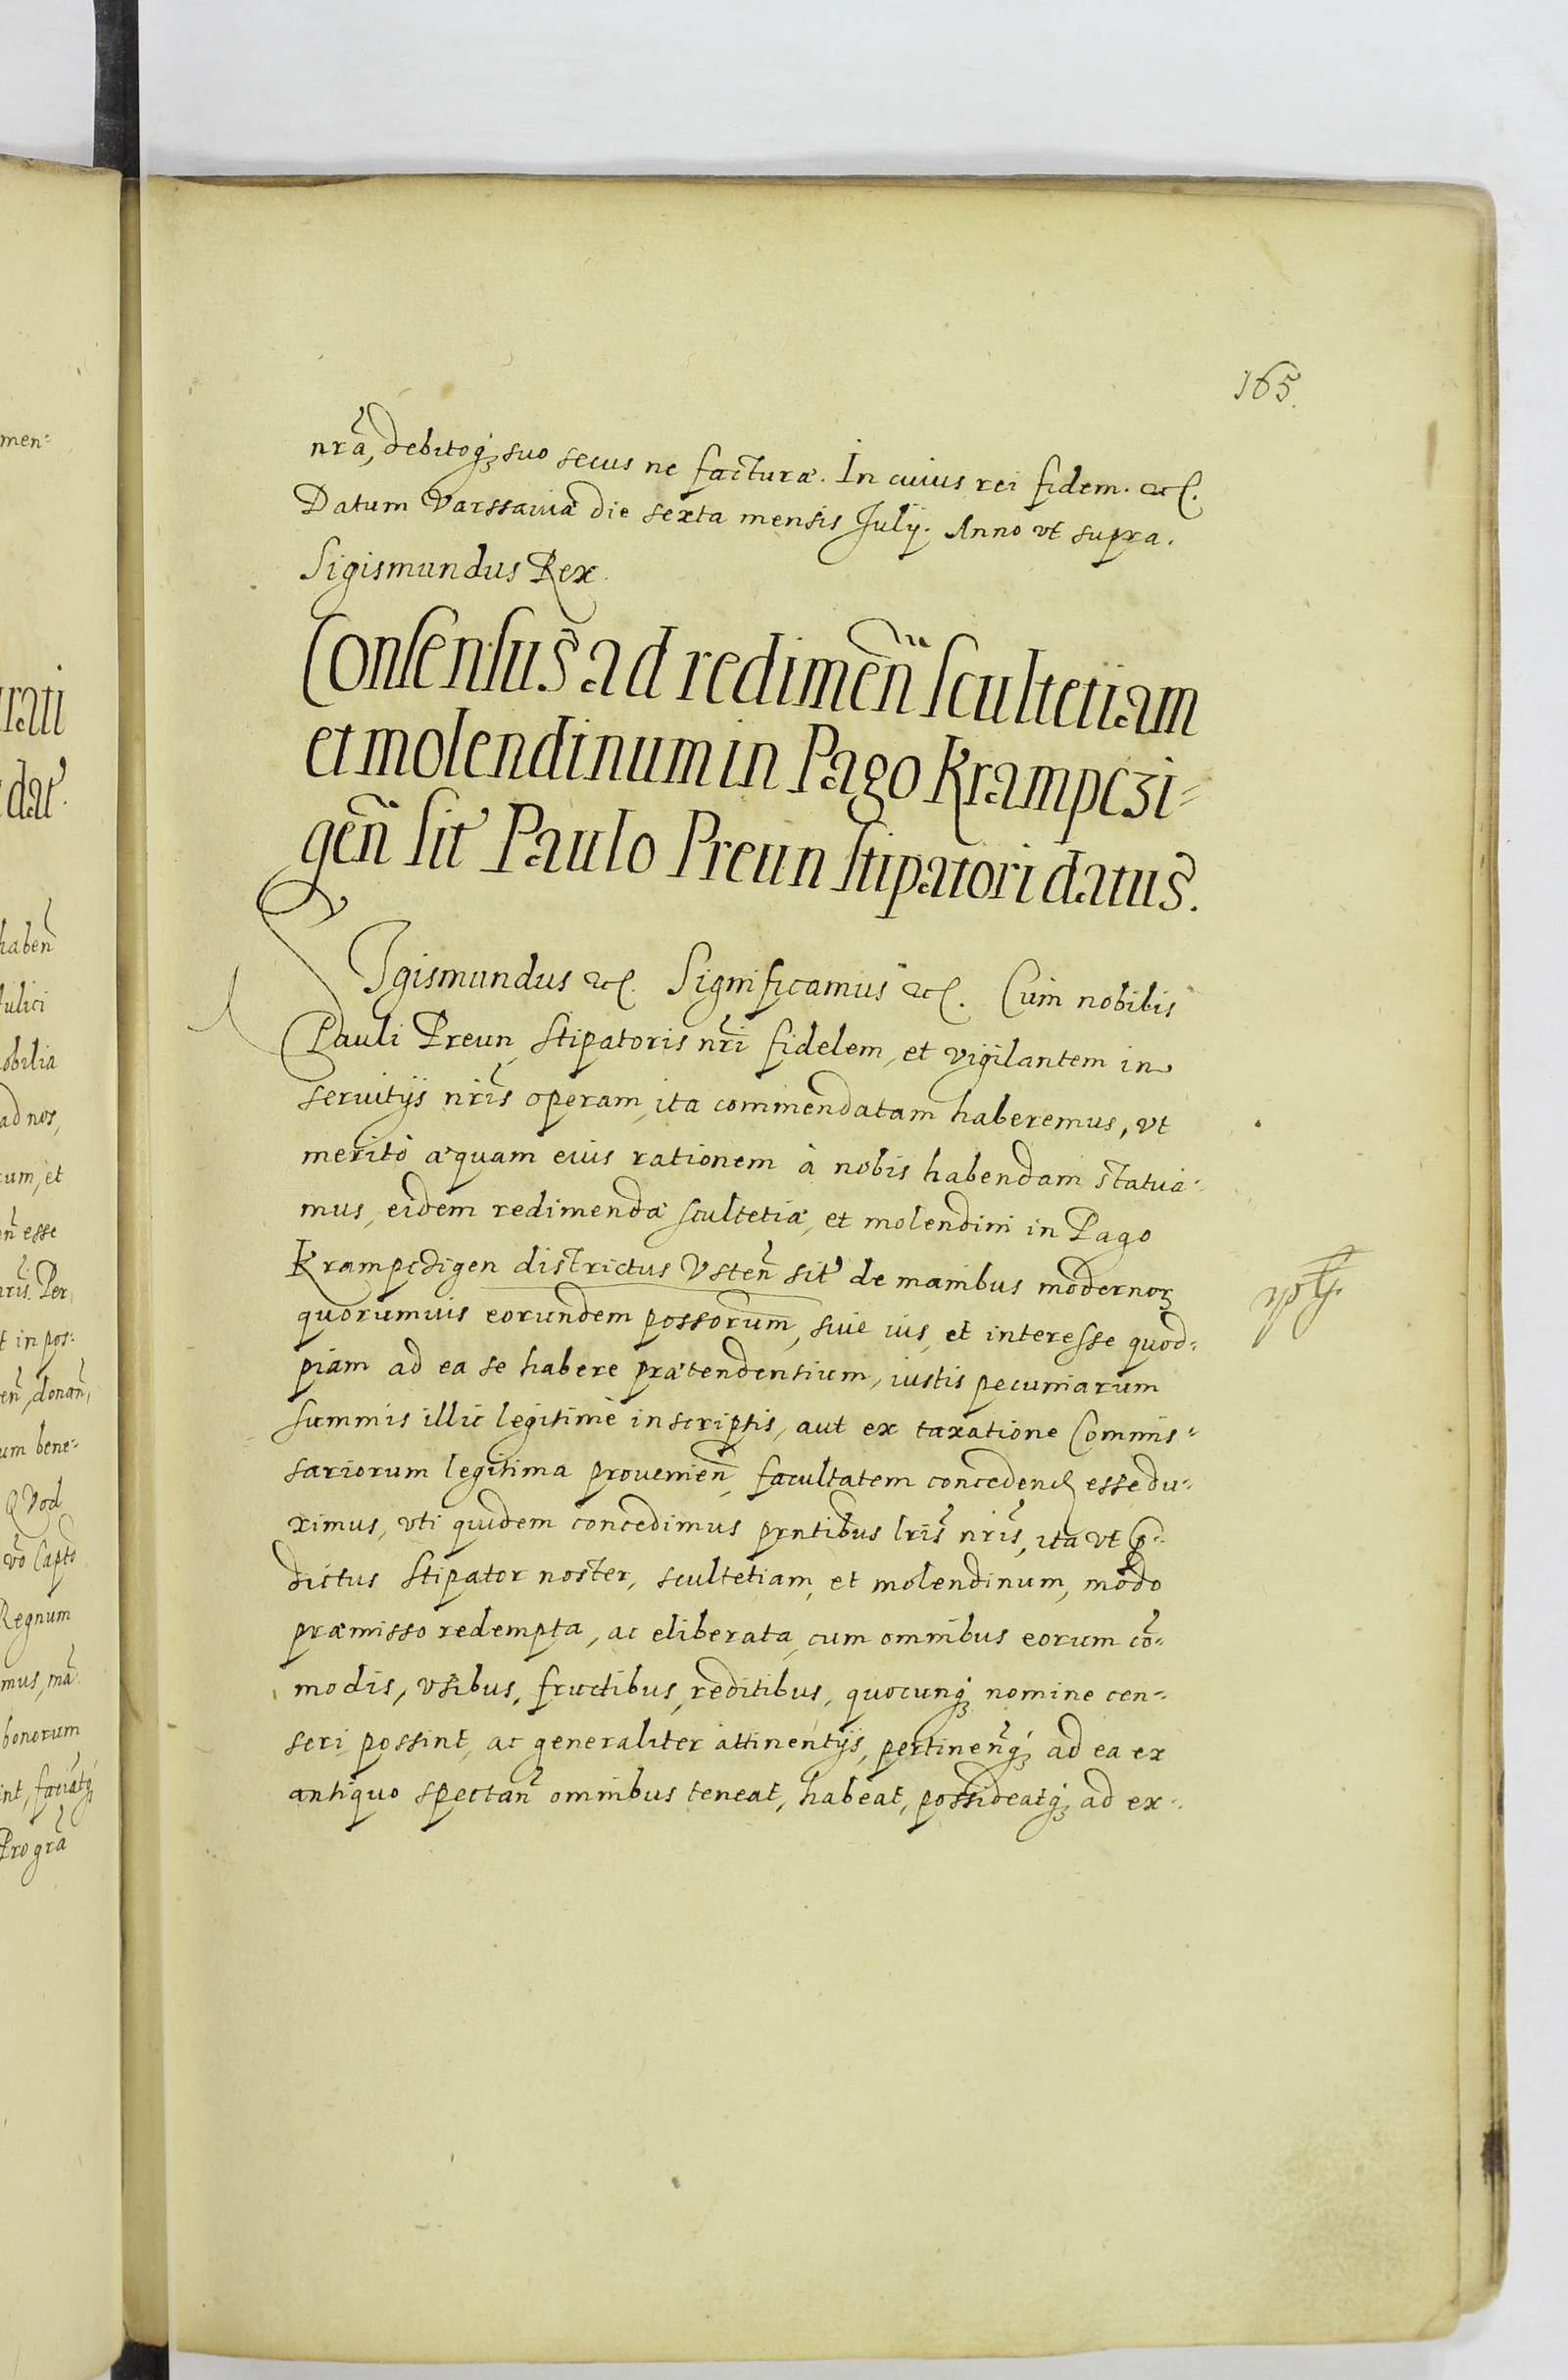 165.
nrã, debitoq꜄ suo secus ne facturæ. In cuius rei fidem. &c.
Datum Varssaviæ die sexta mensis Julij. Anno vt supra.
Sigismundus Rex.
Consensus ad redimen̄ scultetiam
et molendinum in Pago Krampczi-
gen̄ sit' Paulo Preun stipatori datus.
Sigismundus &c. Significamus &c. Cum nobilis
Pauli Preun, stipatoris nr̃i fidelem, et vigilantem in
seruitijs nr̃is operam, ita commendatam haberemus, vt
meritò æquam eius rationem à nobis habendam statua-
mus, eidem redimendæ scultetiæ, et molendini in Pago
Krampczigen districtus Vsten̄ sit' de manibus modernoꝝ
quorumuis eorundem possorum, siue ius, et interesse quod-
piam ad ea se habere prætendentium, iustis pecuniarum
summis illic legitimè inscriptis, aut ex taxatione Commis-
sariorum legitima prouenien̄, facultatem conceden̄ esse du-
ximus, vti quidem concedimus prñtibus lr̃is nr̃is, ita vt p̱-
dictus stipator noster, scultetiam, et molendinum, modo
præmisso redempta, ac eliberata, cum omnibus eorum cõ-
modis, vsibus, fructibus, reditibus, quocunq꜄ nomine cen-
seri possint, ac generaliter attinentijs, pertinen̄q꜄ ad ea ex
antiquo spectan̄ omnibus teneat, habeat, possideatq꜄ ad ex-